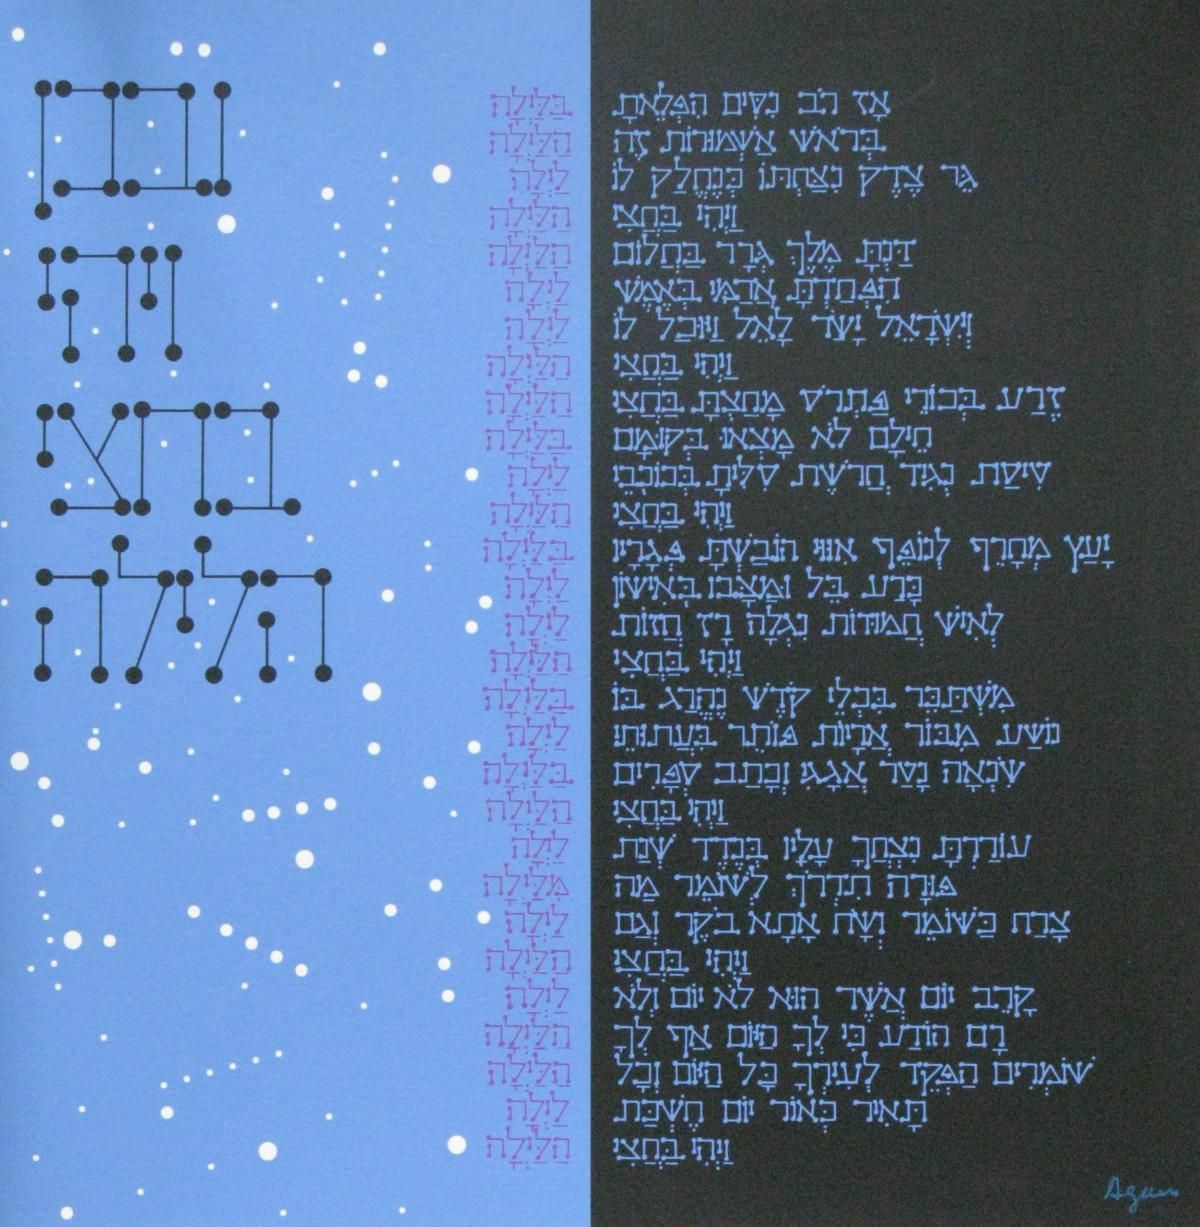 ובכן
ויהי
בחצי
הלילה
אָז רֹב נִסִּים הִפְלֵאתָ בַּלַּיְלָה
בְּרֹאשׁ אַשְׁמוּרוֹת זֶה הַלַּיְלָה
גֵּר צֶדֶק נִצַּחְתּוֹ כְּנֶחֱלַק לוֹ לַיְלָה
וַיְהִי בַּחֲצִי הַלַּיְלָה
דַּנְתָּ מֶלֶךְ גְּרָר בַּחֲלוֹם הַלַּיְלָה
הִפְחַדְתָּ אֲרַמִּי בְּאֶמֶשׁ לַיְלָה
וְיִשְׂרָאֵל יָשַׂר לָאֵל וַיּוּכַל לוֹ לַיְלָה
וַיְהִי בַּחֲצִי הַלַּיְלָה
זֶרַע בְּכוֹרֵי פַּתְרֹס מָחַצְתָּ בַּחֲצִי הַלַּיְלָה
חֵילָם לֹא מָצְאוּ בְּקוּמָם בַּלַּיְלָה
טִיסַת נְגִיד חֲרֹשֶׁת סִלִּיתָ בְּכוֹכְבֵי לַיְלָה
וַיְהִי בַּחֲצִי הַלַּיְלָה
יָעַץ מְחָרֵף לְנוֹפֵף אִוּוּי הוֹבַשְׁתָּ פְּגָרָיו בַּלַּיְלָה
כָּרַע בֵּל וּמַצָּבוֹ בְּאִישׁוֹן לַיְלָה
לְאִישׁ חֲמוּדוֹת נִגְלָה רָז חֲזוֹת לַיְלָה
וַיְהִי בַּחֲצִי הַלַּיְלָה
מִשְׁתַּכֵּר בִּכְלֵי קֹדֶשׁ נֶהֱרַג בּוֹ בַּלַּיְלָה
נוֹשַׁע מִבּוֹר אֲרָיוֹת פּוֹתֵר בִּעֲתוּתֵי לַיְלָה
שִׂנְאָה נָטַר אֲגָגִי וְכָתַב סְפָרִים בַּלַּיְלָה
וַיְהִי בַּחֲצִי הַלַּיְלָה
עוֹרַרְתָּ נִצְחֲךָ עָלָיו בְּנֶדֶד שְׁנַת לַיְלָה
פּוּרָה תִדְרֹךְ לְשׁוֹמֵר מַה מִלַּיְלָה
צָרַח כַּשּׁוֹמֵר וְשָׂח אָתָא בֹקֶר וְגַם לַיְלָה
וַיְהִי בַּחֲצִי הַלַּיְלָה
קָרֵב יוֹם אֲשֶׁר הוּא לֹא יוֹם וְלֹא לַיְלָה
רָם הוֹדַע כִּי לְךָ הַיּוֹם אַף לְךָ הַלַּיְלָה
שׁוֹמְרִים הַפְקֵד לְעִירְךָ כָּל הַיּוֹם וְכָל הַלַּיְלָה
תָּאִיר כְּאוֹר יוֹם חֶשְׁכַת לַיְלָה
וַיְהִי בַּחֲצִי הַלַּיְלָה
Agam